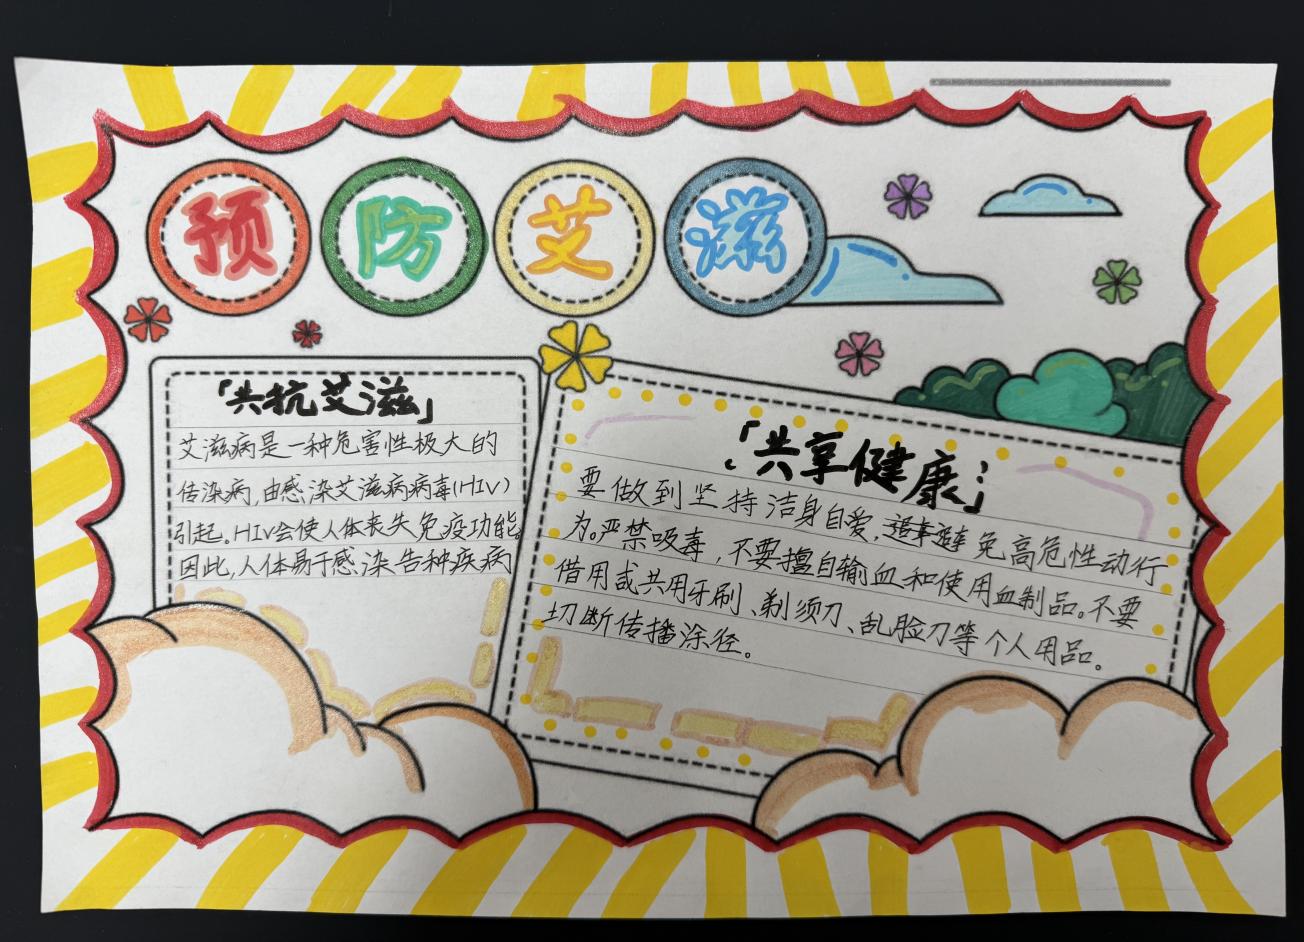 预防艾滋
「共抗艾滋」
艾滋病是一种危害性极大的
传染病,由感染艾滋病病毒(HIV)
引起。HIV会使人体丧失免疫功能。
因此,人体易于感染各种疾病
「共享健康」
要做到坚持洁身自爱,避免高危性动行
为。严禁吸毒,不要擅自输血和使用血制品。不要
借用或共用牙刷、剃须刀、乱脸刀等个人用品。
切断传播涂径。